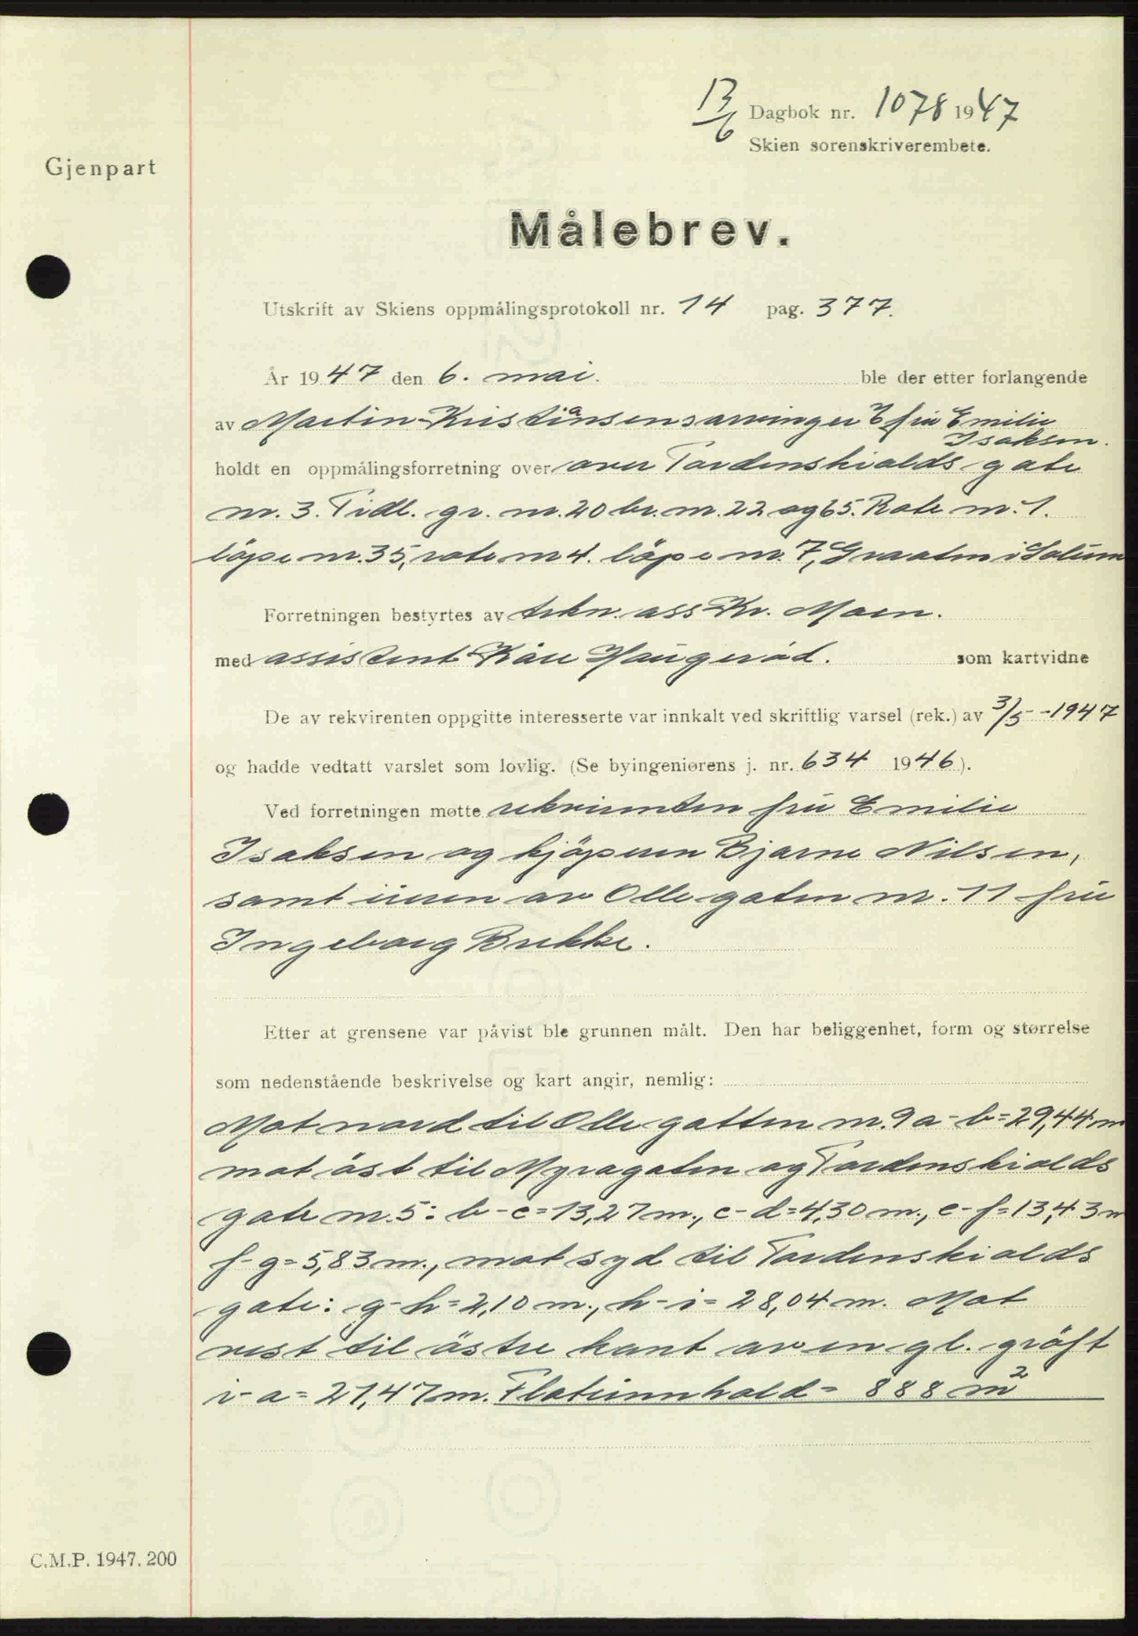 13/6 Dagbok nr. 1078 1947
Skien sorenskriverembete.
Gjenpart
Målebrev.
Utskrift av Skiens oppmålingsprotokoll nr. 14 pag. 377.
År 1947 den 6. mai. ble der etter forlangende
av Martin Kristiansens arvinger v/ fru Emilie
Isaksen.
holdt en oppmålingsforretning over over Tordenskiolds gate
nr. 3. Tidl. gr. nr. 20 br. nr. 22 og 65. Rode nr. 1.
löpe nr. 35, rode nr 4. löpe nr. 7, Graaten i Solum
Forretningen bestyrtes av tekn. ass Kr. Moen.
med assistent Kåre Haugerød. som kartvidne
De av rekvirenten oppgitte interesserte var innkalt ved skriftlig varsel (rek.) av 3/5 - 1947
og hadde vedtatt varslet som lovlig. (Se byingeniørens j. nr. 634 1946).
Ved forretningen møtte rekvirenten fru Emilie
Isaksen og kjöperen Bjarne Nilsen,
samt eieren av Olle gaten nr. 11 fru
Ingeborg Brekke.
Etter at grensene var påvist ble grunnen målt. Den har beliggenhet, form og størrelse
som nedenstående beskrivelse og kart angir, nemlig:
Mot nord til Olle gatten nr. 9 a-b=29,44 m
mot öst til Myragaten og Tordenskiolds
gate nr. 5: b-c=13,27 m., c-d=4,30 m., e-f=13,43 m
f-g=5,83 m., mot syd til Tordenskiolds
gate: g-h=2,10 m., h-i=28,04 m. Mot
vest til östre kant av en gl. gröft
i-a=27,47 m. Flateinnhold= 888 m2
C.M.P. 1947. 200